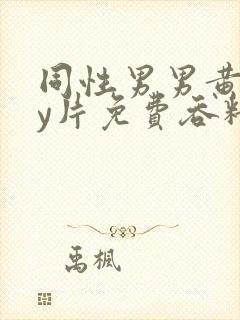 同性男男黄
y片免费吞
禹枫